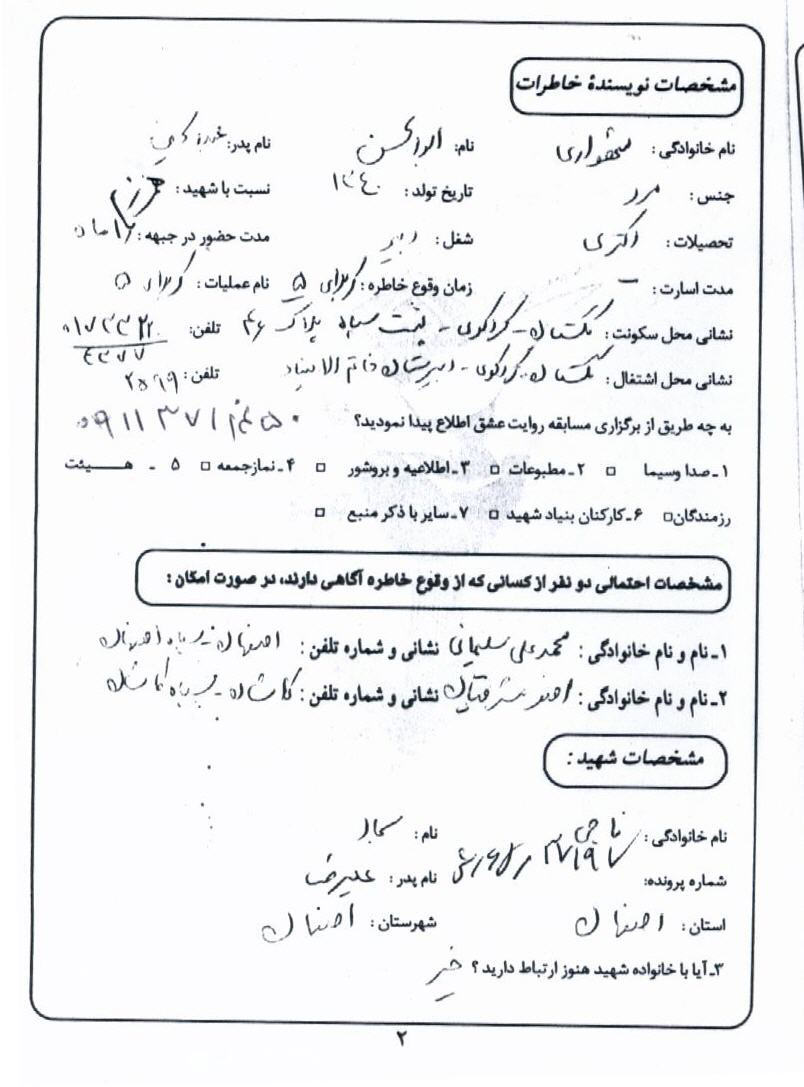 مشخصات نویسندهٔ خاطرات
نام خانوادگی: نام: ابوالحسن نام پدر:
جنس: مرد تاریخ تولد: ۱۳۴۰ نسبت با شهید: همرزم
تحصیلات: دکتری شغل: دبیر مدت حضور در جبهه: ۱۲ ماه
مدت اسارت: – زمان وقوع خاطره: کربلای ۵ نام عملیات: کربلای ۵
نشانی محل سکونت: گلستان - کردکوی - پشت سپاه پلاک ۴۶ تلفن:
نشانی محل اشتغال: گلستان - کردکوی - دبیرستان خاتم الانبیاء تلفن:
به چه طریق از برگزاری مسابقه روایت عشق اطلاع پیدا نمودید؟
۱ـ صدا وسیما □ ۲ـ مطبوعات □ ۳ـ اطلاعیه و بروشور □ ۴ـ نمازجمعه □ ۵ ـ هـیئت
رزمندگان□ ۶ـ کارکنان بنیاد شهید □ ۷ـ سایر با ذکر منبع □
مشخصات احتمالی دو نفر از کسانی که از وقوع خاطره آگاهی دارند، در صورت امکان:
۱ـ نام و نام خانوادگی: محمدعلی سلیمانی نشانی و شماره تلفن: اصفهان - سپاه اصفهان
۲ـ نام و نام خانوادگی: نشانی و شماره تلفن: کاشان - سپاه کاشان
مشخصات شهید:
نام خانوادگی: ناجی نام:
شماره پرونده: نام پدر: علیرضا
استان: اصفهان شهرستان: اصفهان
۳ـ آیا با خانواده شهید هنوز ارتباط دارید؟ خیر
۲